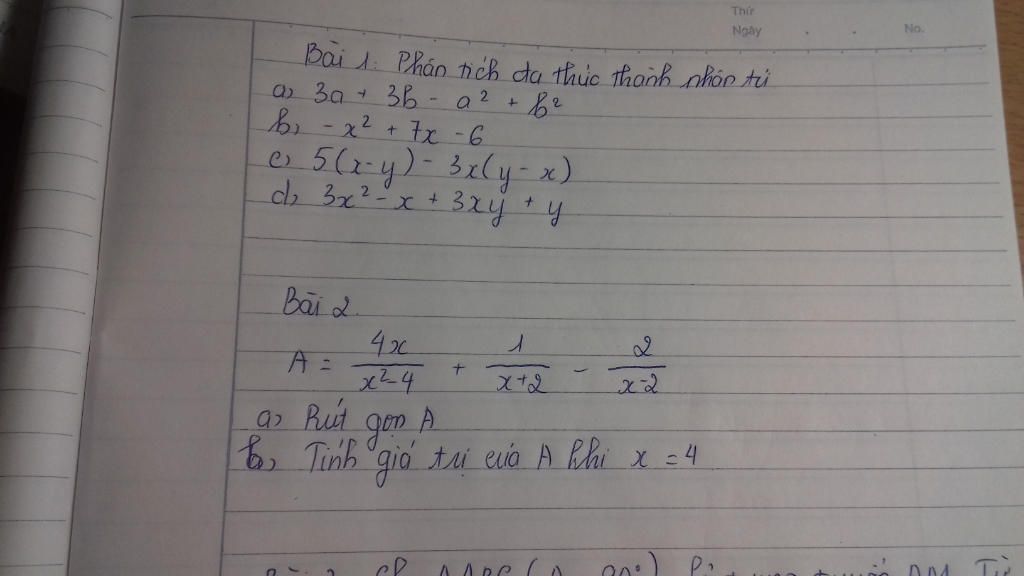 Thứ
Ngày . . No.
Bài 1: Phân tích đa thức thành nhân tử
a) 3a + 3b - a² + b²
b) -x² + 7x - 6
c) 5(x-y) - 3x(y - x)
d) 3x² - x + 3xy + y
Bài 2.
A = 4x/(x²-4) + 1/(x+2) - 2/(x-2)
a) Rút gọn A
b) Tính giá trị của A khi x = 4